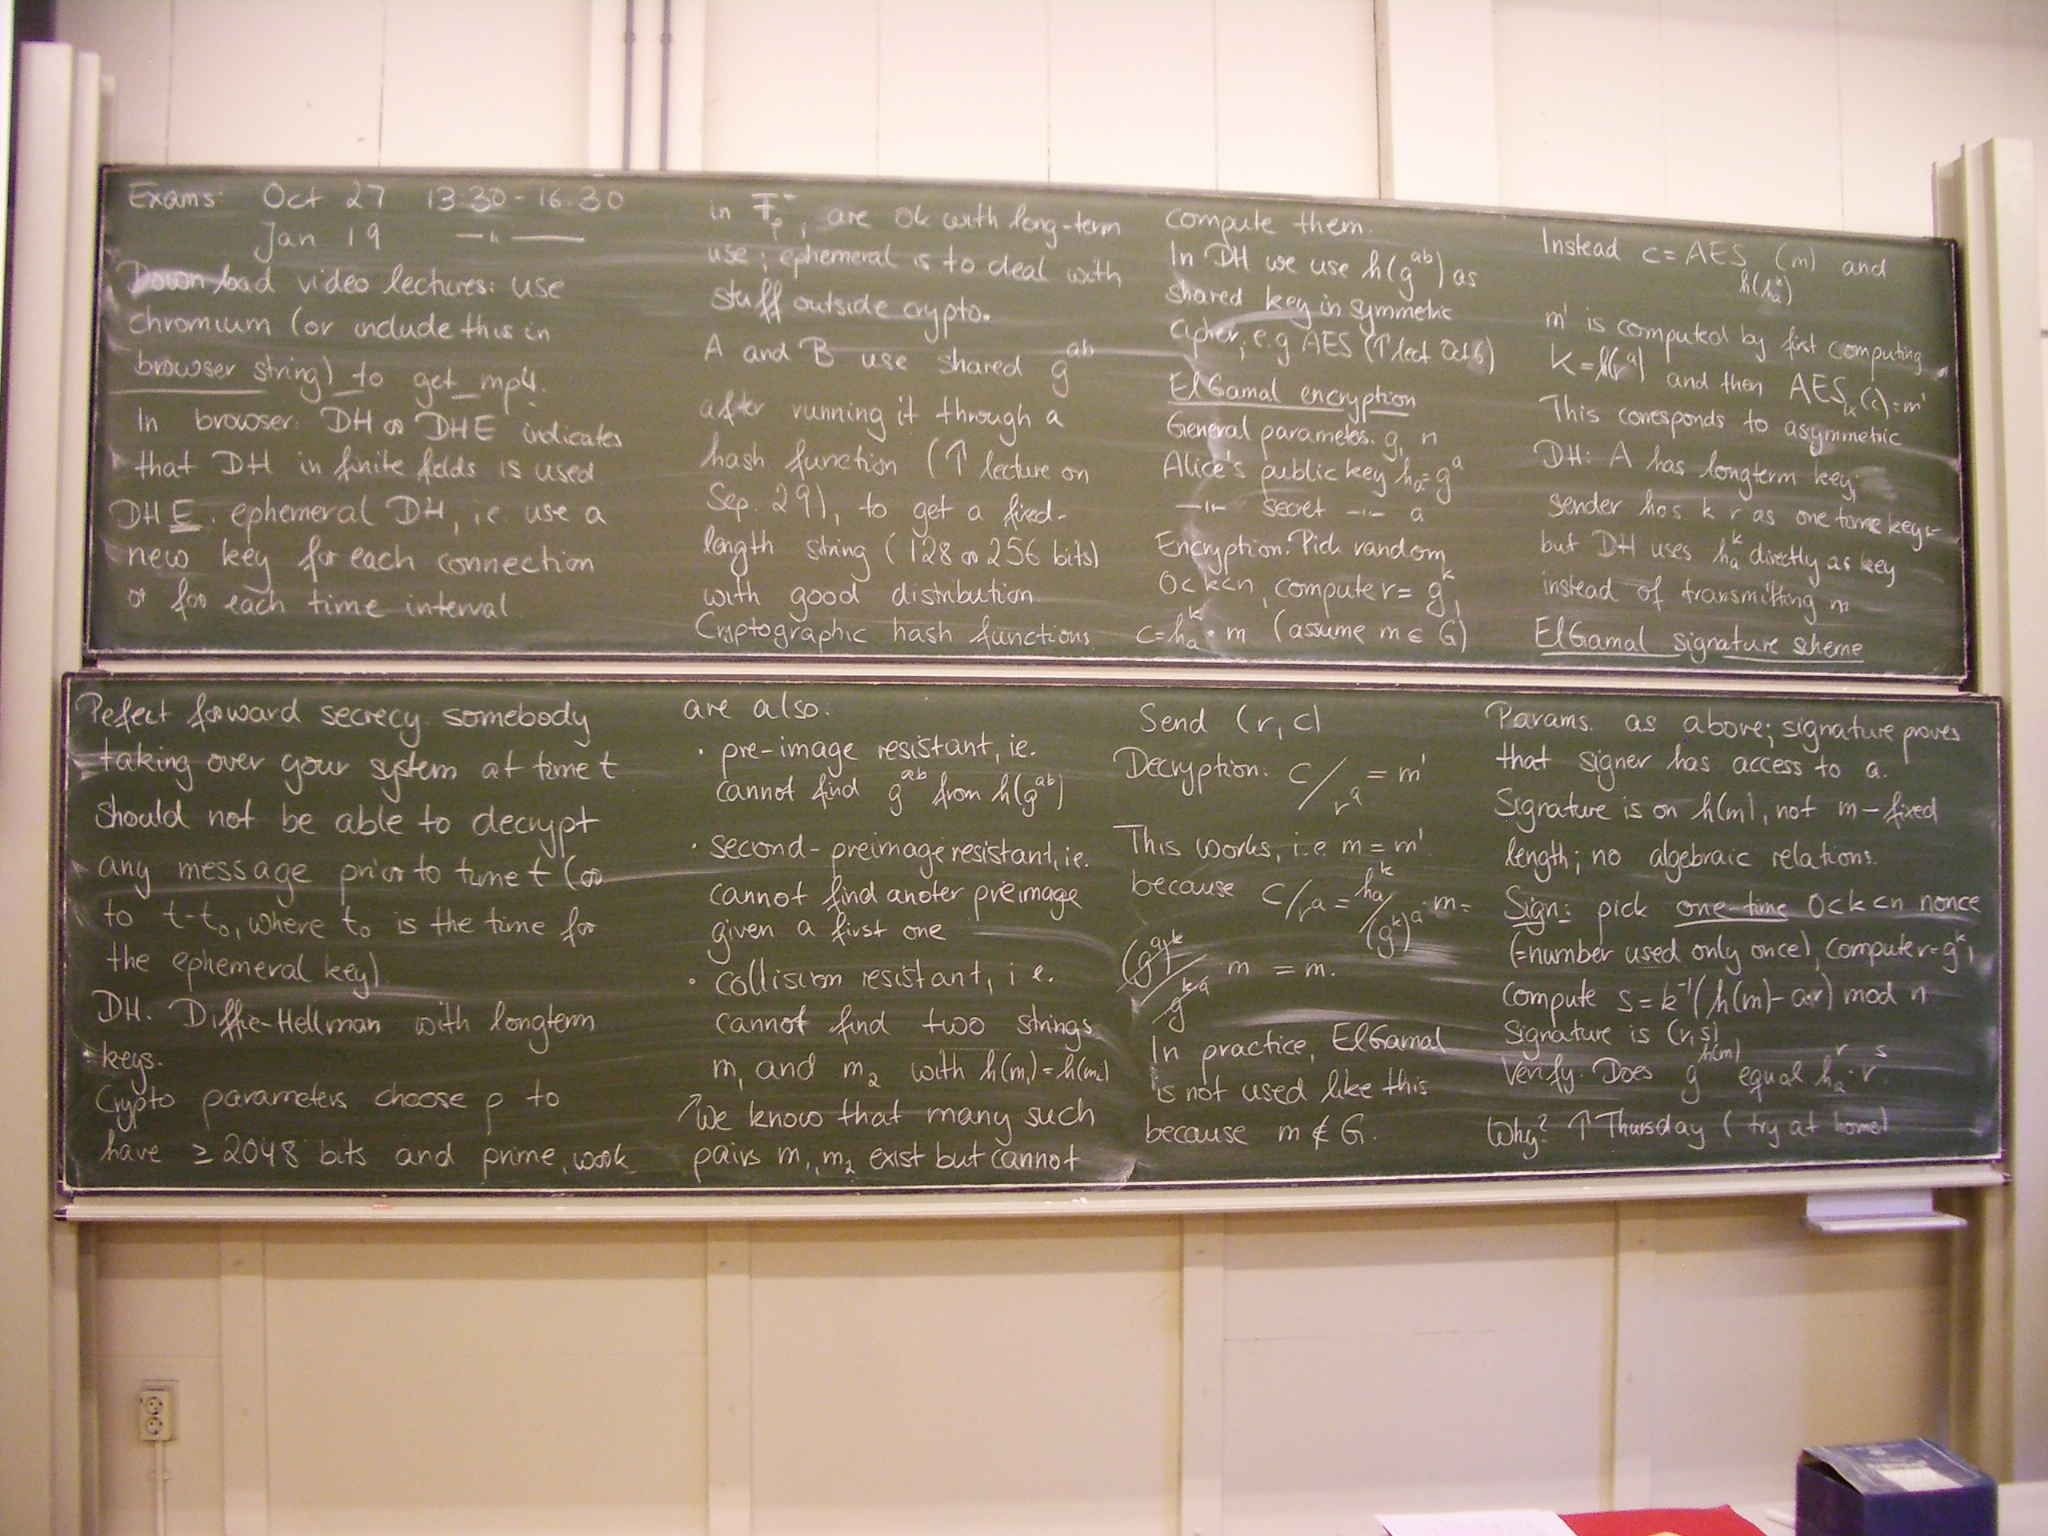 Exams: Oct 27 13:30-16.30
Jan 19 —"—
Download video lectures: use
chromium (or include this in
browser string) to get mp4.
In browser: DH or DHE indicates
that DH in finite fields is used
DHE: ephemeral DH, i.e. use a
new key for each connection
or for each time interval.
Pefect forward secrecy: somebody
taking over your system at time t
should not be able to decrypt
any message prior to time t (or
to t-t₀, where t₀ is the time for
the ephemeral key)
DH: Diffie-Hellman with longterm
keys.
Crypto parameters choose p to
have ≥ 2048 bits and prime, work
in F_p^*, are ok with long-term
use; ephemeral is to deal with
stuff outside crypto.
A and B use shared g^ab
after running it through a
hash function (↑ lecture on
Sep. 29), to get a fixed-
length string (128 or 256 bits)
with good distribution.
Cryptographic hash functions
are also:
· pre-image resistant, ie.
cannot find g^ab from h(g^ab)
· second-preimage resistant, ie.
cannot find anoter preimage
given a first one
· collision resistant, i.e.
cannot find two strings
m₁ and m₂ with h(m₁)=h(m₂)
↗We know that many such
pairs m₁, m₂ exist but cannot
compute them.
In DH we use h(g^ab) as
shared key in symmetric
cipher, e.g AES (↑ lect Oct 6)
ElGamal encryption
General parametes: g, n
Alice's public key h_a=g^a
—"— secret —"— a
Encryption: Pick random
0<k<n, compute r=g^k,
c=h_a^k·m (assume m∈G)
Send (r,c)
Decryption: c/r^a = m'
This works, i.e m=m'
because c/r^a = h_a^k/(g^k)^a·m=
(g^a)^k/g^ka m = m.
In practice, ElGamal
is not used like this
because m∉G.
Instead c=AES_h(h_a^k)(m) and
m' is computed by first computing
K=h(r^a) and then AES_K(c)=m'
This corresponds to asymmetric
DH: A has longterm key;
sender has k r as one time keys
but DH uses h_a^k directly as key
instead of transmitting m
ElGamal signature scheme
Params. as above; signature proves
that signer has access to a.
Signature is on h(m), not m – fixed
length; no algebraic relations.
Sign: pick one-time 0<k<n nonce
(=number used only once), compute r=g^k,
compute s=k⁻¹(h(m)-a·r) mod n
Signature is (r,s)
Verify: Does g^h(m) equal h_a^r·r^s
Why? ↑ Thursday (try at home)